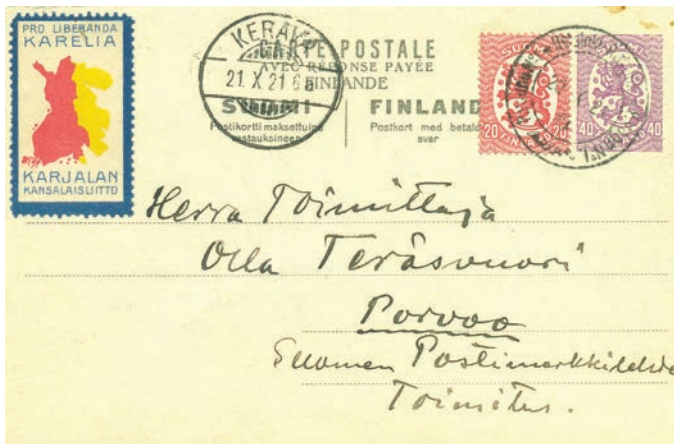 PRO LIBERANDA
KARELIA
KARJALAN
KANSALAISLIITTO
KERAVA
21. X. 21
CARTE POSTALE
AVEC RÉPONSE PAYÉE
FINLANDE
SUOMI
Postikortti maksettuine
vastauksineen
FINLAND
Postkort med betalt
svar
SUOMI
20 20
SUOMI
40 40
Herra Toimittaja
Olla Teräsvuori
Porvoo
Suomen Postimerkkilehden
Toimitus.